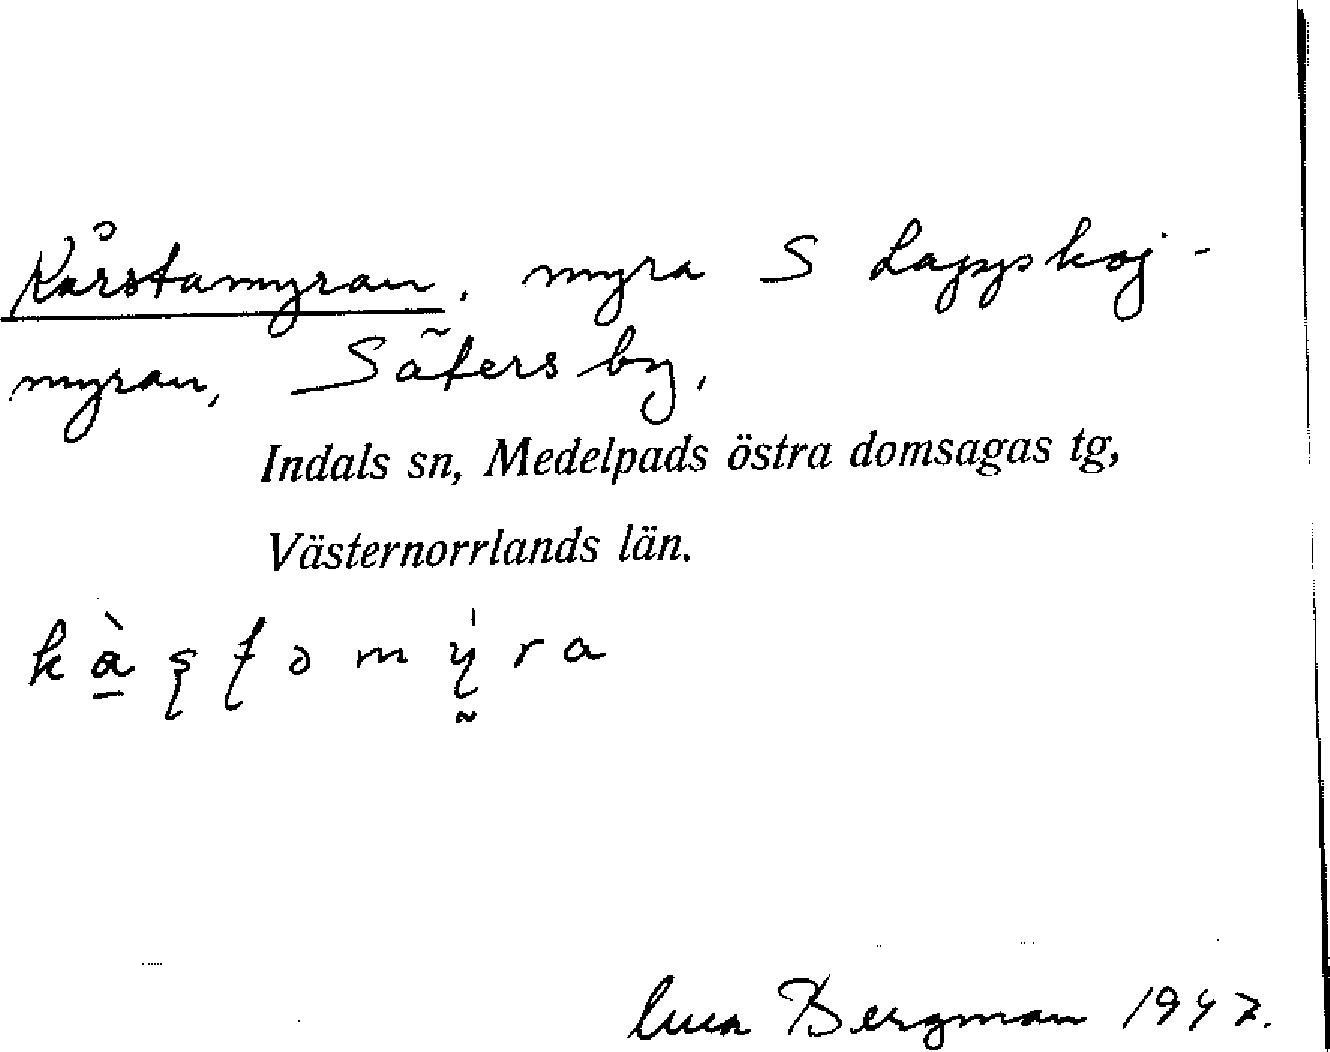 Kårstamyran, myra S Lappkoj-
myran, Säters by,
Indals sn, Medelpads östra domsagas tg,
Västernorrlands län.
kàşţəmýra
Bergman 1947.